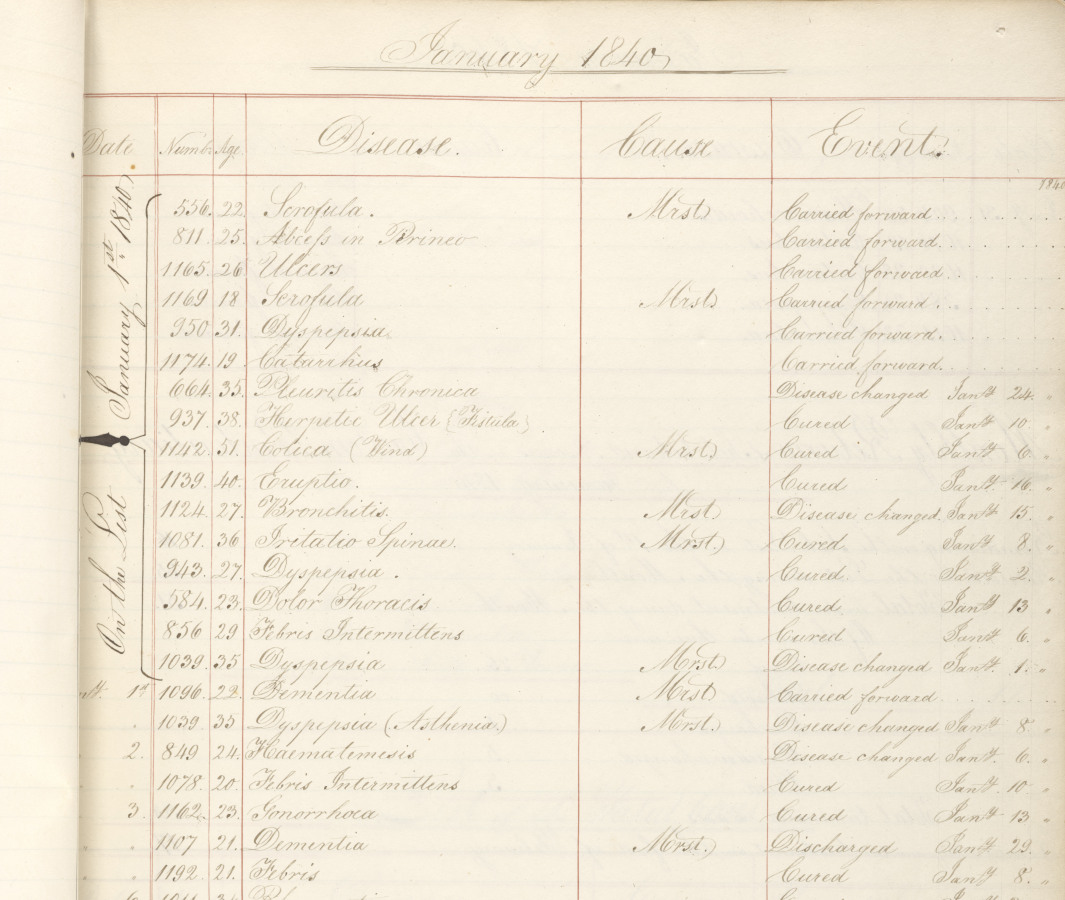 January 1840
Date Numb. Age. Disease. Cause Event.
1840
On the List January 1st. 1840
556. 22. Scrofula. Mrst) Carried forward . . . . . . . .
811. 25. Abcess in Perineo Carried forward. . . . . . . .
1165. 26 Ulcers Carried forward . . . . . . .
1169 18 Scrofula Mrst) Carried forward . . . . . . .
950 31. Dyspepsia Carried forward. . . . . . . .
1174. 19 Catarrhus Carried forward. . . . . . . .
664. 35. Pleuritis Chronica Disease changed Jany. 24. "
937. 38. Herpetic Ulcer {Fistula} Cured Jany. 10. "
1142. 51. Colica (Wind) Mrst.) Cured Jany. 6. "
1139. 40. Eruptio. Cured Jany. 16. "
1124. 27. Bronchitis. Mrst) Disease changed. Jany. 15. "
1081. 36 Iritatio Spinae. Mrst.) Cured. Jany. 8. "
943. 27. Dyspepsia . Cured. Jany. 2. "
584. 23. Dolor Thoracis Cured Jany. 13 "
856 29 Febris Intermittens Cured. Jany. 6. "
1039. 35 Dyspepsia Mrst) Disease changed Jany. 1. "
1st 1096. 22. Dementia Mrst) Carried forward. . . . . . . .
. 1039. 35 Dyspepsia (Asthenia.) Mrst.) Disease changed Jany. 8. "
2. 849 24. Haematemesis Disease changed Jany. 6. "
. 1078. 20. Febris Intermittens Cured Jany. 10. "
3. 1162. 23. Gonorrhoea Cured Jany. 13 "
. 1107 21. Dementia Mrst.) Discharged Jany. 29. "
. 1192. 21. Febris Cured Jany. 8. "